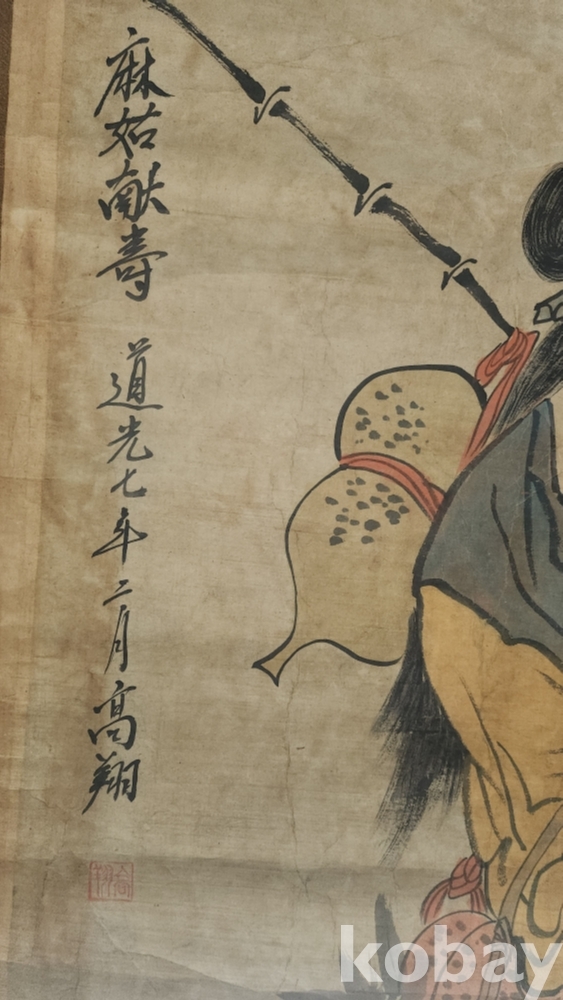 麻姑献壽 道光七年二月 高翔
高翔
kobay